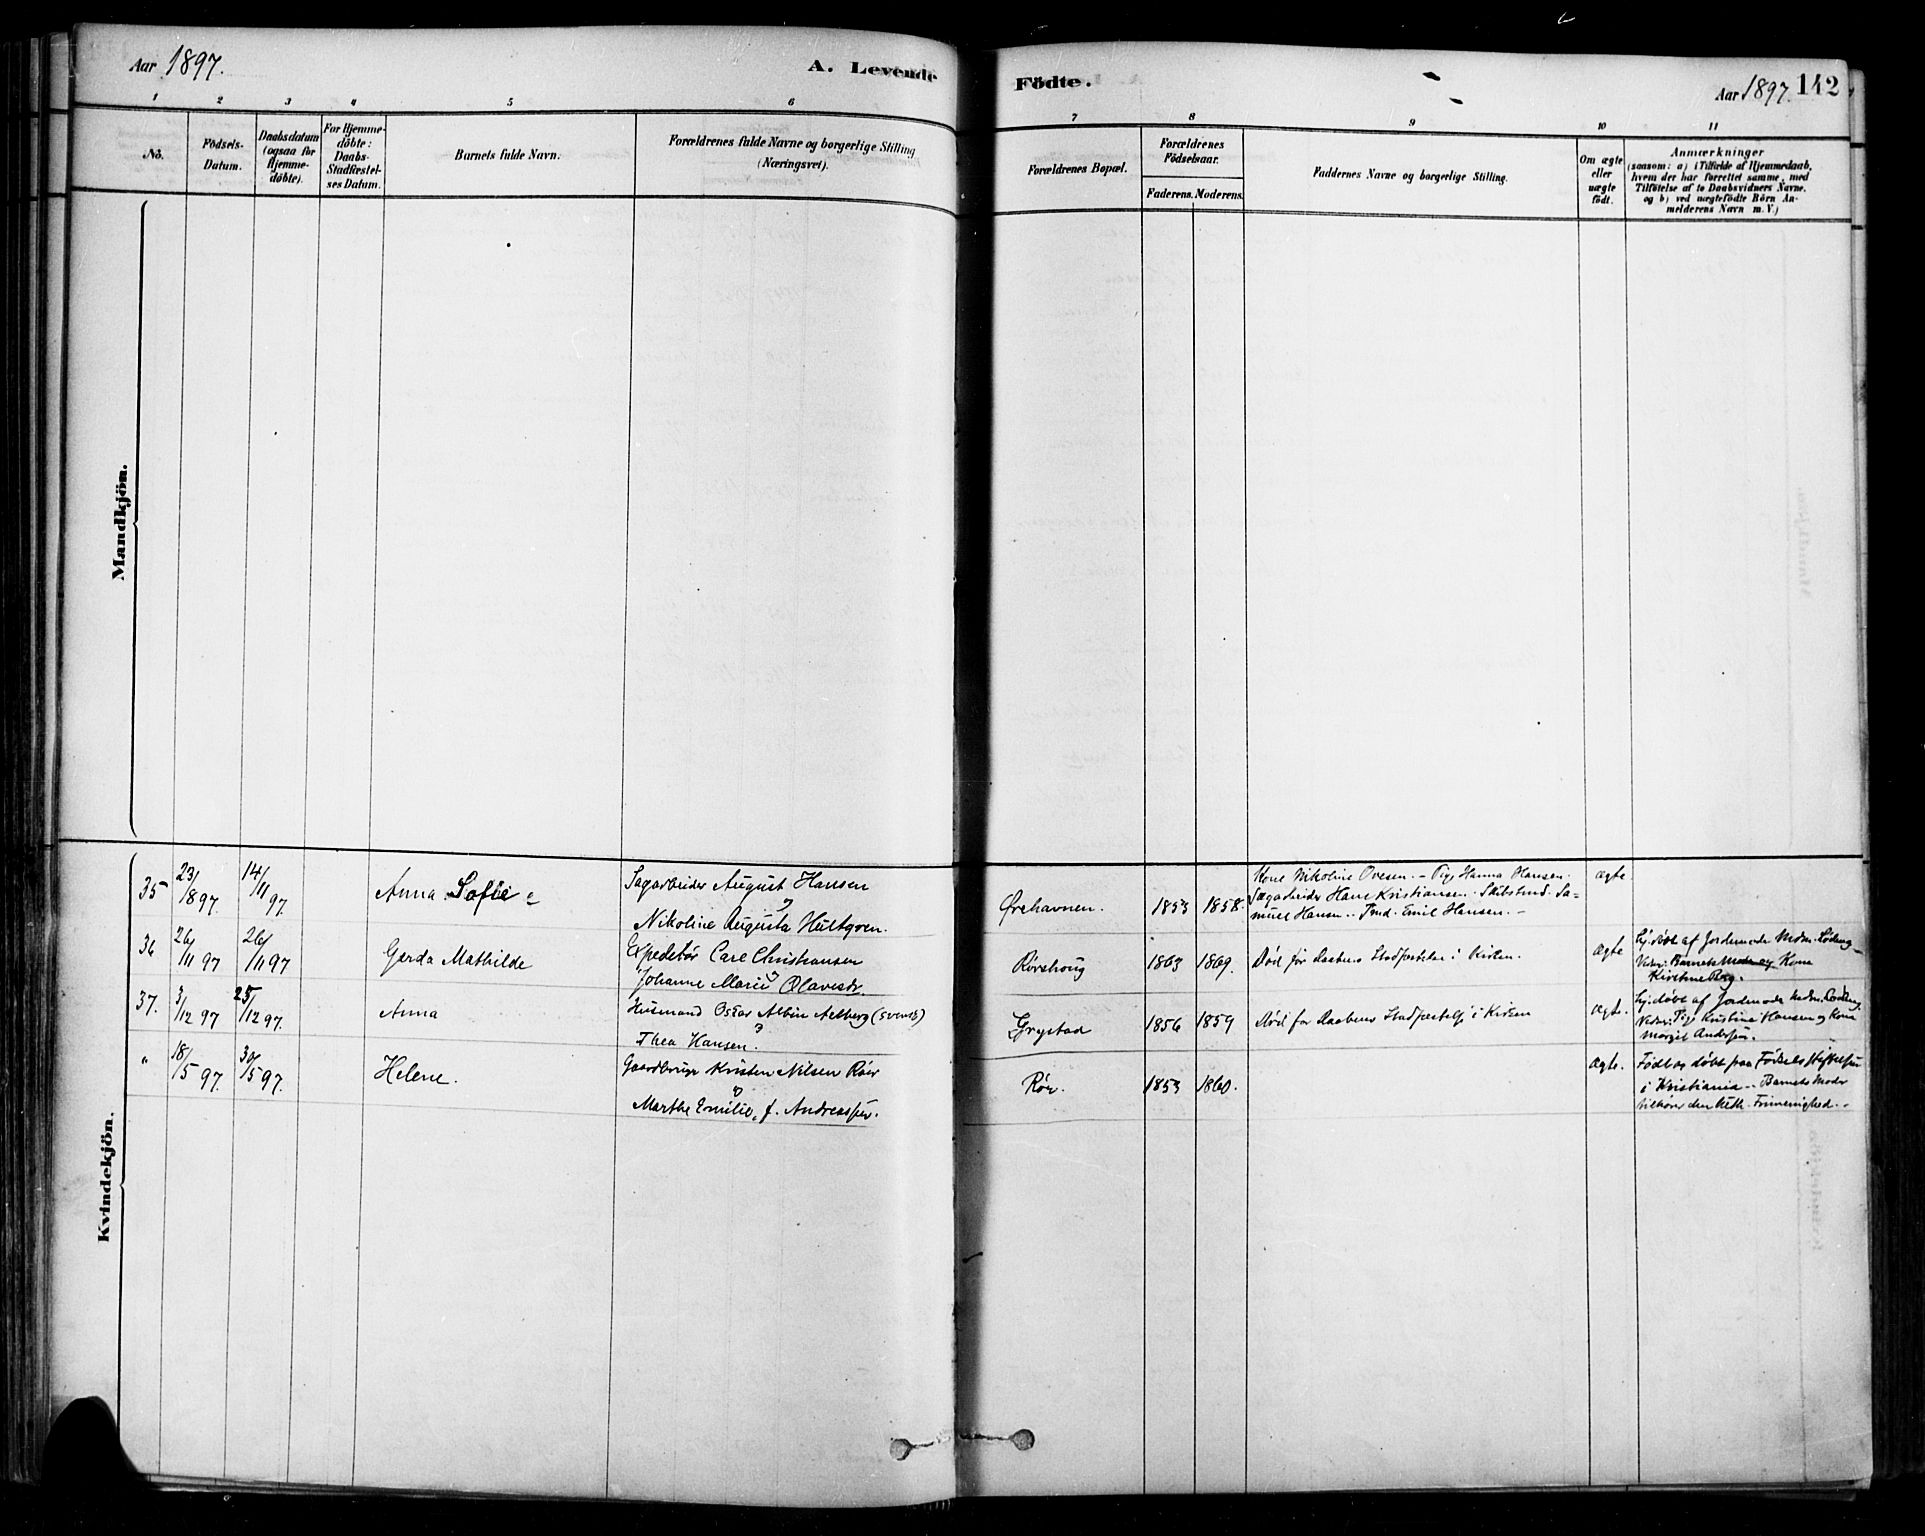 Aar 1897.
A. Levende
Födte.
Aar 1897. 142
1 2 3 4 5 6
7 8 9 10 11
No.
Födsels-
Datum.
Daabsdatum
(ogsaa for
Hjemme-
döbte).
For Hjemme-
döbte:
Daabs-
Stadfæstel-
ses Datum.
Barnets fulde Navn.
Forældrenes fulde Navne og borgerlige Stilling
(Næringsvei).
Forældrenes Bopæl.
Forældrenes
Födselsaar.
Faderens. Moderens.
Faddernes Navne og borgerlige Stilling.
Om ægte
eller
uægte
födt.
Anmærkninger
(saasom: a) i Tilfælde af Hjemmedaab,
hvem der har forrettet samme, med
Tilföielse af to Daabsvidners Navne.
og b) ved uægtefödte Börn An-
melderens Navn m. V.)
Mandkjön.
Kvindekjön.
35 23/8 97. 14/11 97. Anna Sofie
Sagarbeider August Hansen
Nikoline Augusta Hultgren.
Ørehavnen. 1853 1858.
Kone Nikoline Ovesen. – Pige Hanna Hansen.
Sagarbeider Hans Kristiansen. Skibstmd. Sa-
muel Hansen .. Tmd. Emil Hansen. –
ægte
36 26/11 97 26/11 97 Gerda Mathilde
Expeditør Carl Christiansen
Johanne Marie Olavesdr.
Rørshoug 1863 1869.
Død før Daabens Stadfæstelse i Kirken.
ægte
Hj.døbt af Jordemoder Mdm.
Vidner: Barnets Moder og Kone
Kirstine Berg.
37. 3/12 97 25/12 97. Anna
Husmand Oskar Albin Aelberg (svensk)
Thea Hansen.
Grystad 1856 1859
Død før Daabens Stadfæstelse i Kirken
ægte.
Hj.døbt af Jordemoder Mdm.
Vidner: Pige Kristine Hansen og Kone
Margit Andersen.
" 18/5 97. 30/5 97. Helene.
Gaardbruger Kristen Nilsen Rør
Marthe Emilie, f. Andreassen.
Rør. 1853 1860.
ægte.
Født og døbt paa Fødselsstiftelsen
i Kristiania – Barnets Moder
tilhører den luth. Frimenighed. –